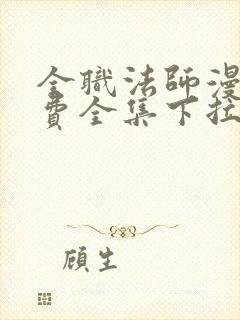 全職法師漫
費全集下拉
顧生